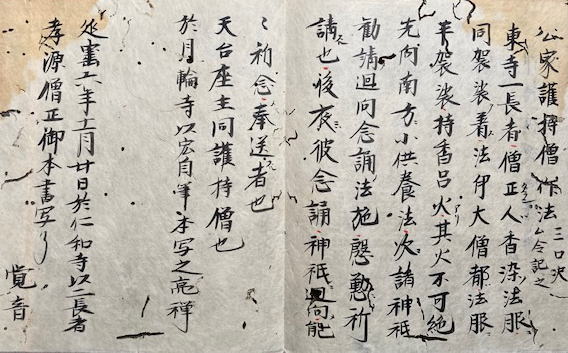 公家護持僧作法
東寺一長者僧正人香染法服
同袈裟着法伊大僧都法服
平袈裟持香呂火其火不可絶
先向南方小供養法次諸神祇
勧請廻向念誦法施慇懃祈
請也後夜彼念誦神祇廻向能
〻祈念奉送者也
天台座主同護持僧也
於月輪寺以宏自筆本写之禅
永六年十一月廿日於仁和寺以一長者
孝源僧正御本書写了
覚音